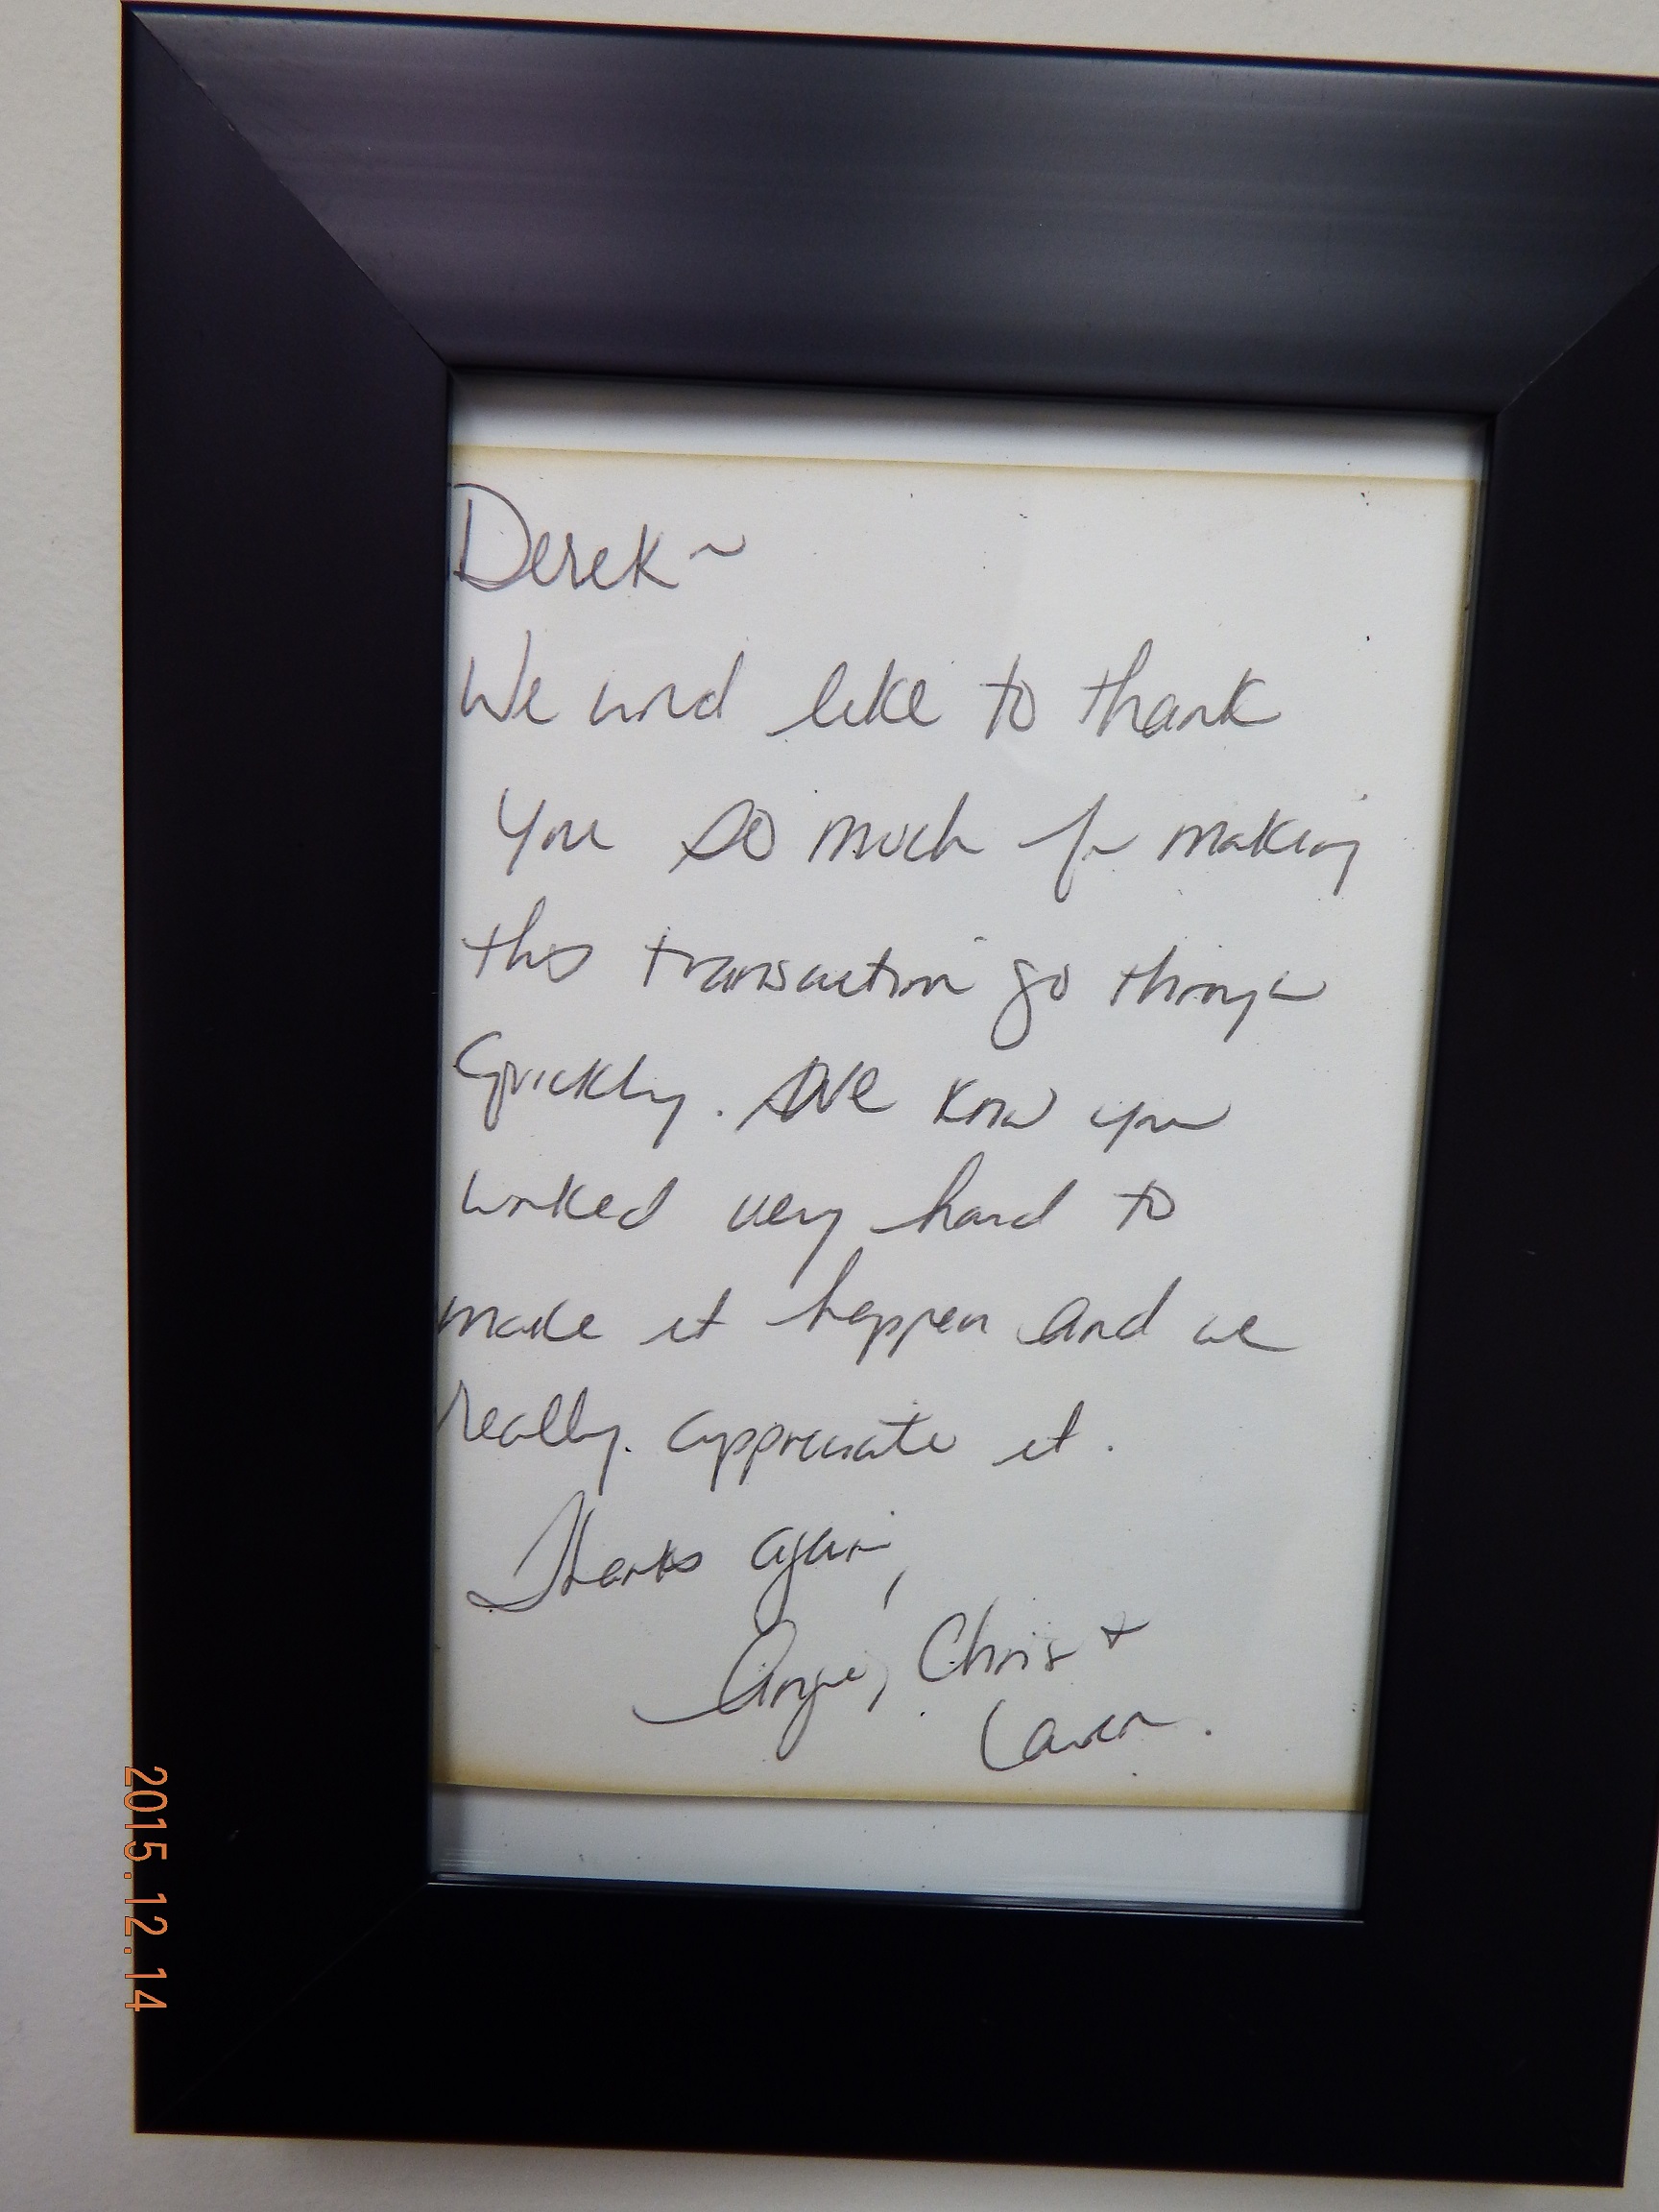 Derek ~
We would like to thank
you so much for making
this transaction go through
Quickly. We know you
worked very hard to
make it happen and we
really appreciate it.
Thanks again,
Angie, Chris +
2015.12.14